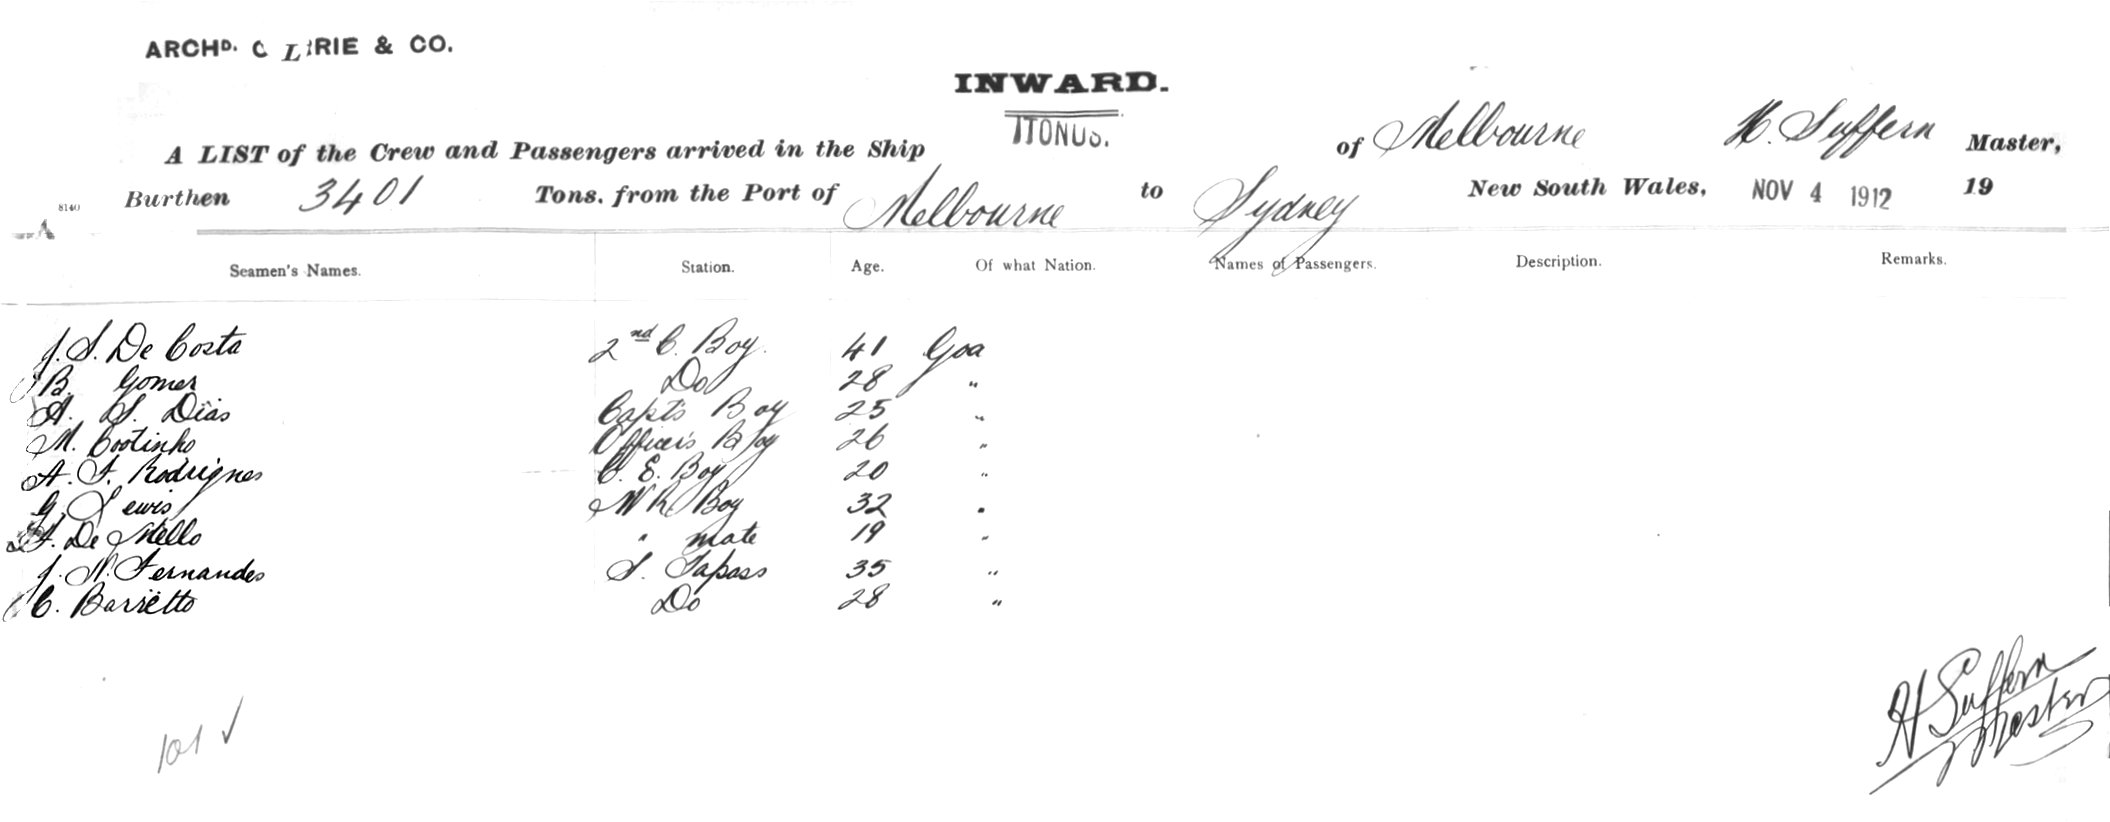 ARCHD. C L RIE & CO.
INWARD.
ITONUS.
A LIST of the Crew and Passengers arrived in the Ship of Melbourne H. Suffern Master,
8140 Burthen 3401 Tons, from the Port of Melbourne to Sydney New South Wales, NOV 4 1912 19
Seamen's Names. Station. Age. Of what Nation. Names of Passengers. Description. Remarks.
J. S. De Costa 2nd C. Boy. 41 Goa
B. Gomes Do 28 "
A. S. Dias Capt's Boy 25 "
M. Cootinho Officer's Boy 26 "
A. F. Rodrigues C. E. Boy 20 "
G. Lewis W R Boy 32 "
F. De Mello " mate 19 "
J. N. Fernandes S. Tapass 35 "
C. Barretto Do 28 "
H Suffern
Master
101 ✓